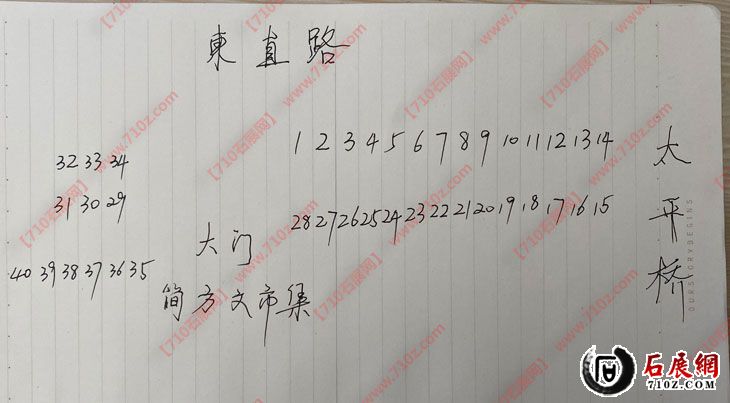 東直路
1 2 3 4 5 6 7 8 9 10 11 12 13 14
32 33 34
31 30 29
28 27 26 25 24 23 22 21 20 19 18 17 16 15
太平桥
大门
40 39 38 37 36 35
简方文市集
OURSTORYBEGINS
【710石展网】www.710z.com
石展網
710z.com